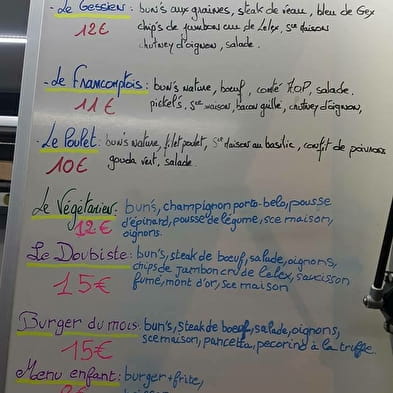 - Le Gessien: bun's aux graines, steak de veau, bleu de Gex
12€ chip's de jambon cru de Lelex, sce maison
chutney d'oignon, salade.
- Le Francomtois: bun's nature, bœuf, comté AOP, salade.
11€ pickel's, sce maison, bacon grillé, chutney d'oignon,
- Le Poulet: bun's nature, filet poulet, sce maison au basilic, confit de poivrons
10€ gouda vert, salade
Le Végétarien: bun's, champignon porto-belo, pousse
12€ d'épinard, pousse de légume, sce maison,
oignons.
Le Doubiste: bun's, steak de bœuf, salade, oignons,
chips de jambon cru de Lelex, saucisson
15€ fumé, mont d'or, sce maison
Burger du mois: bun's, steak de bœuf, salade, oignons,
15€ sce maison, pancetta, pecorino à la truffe.
Menu enfant: burger + frite,